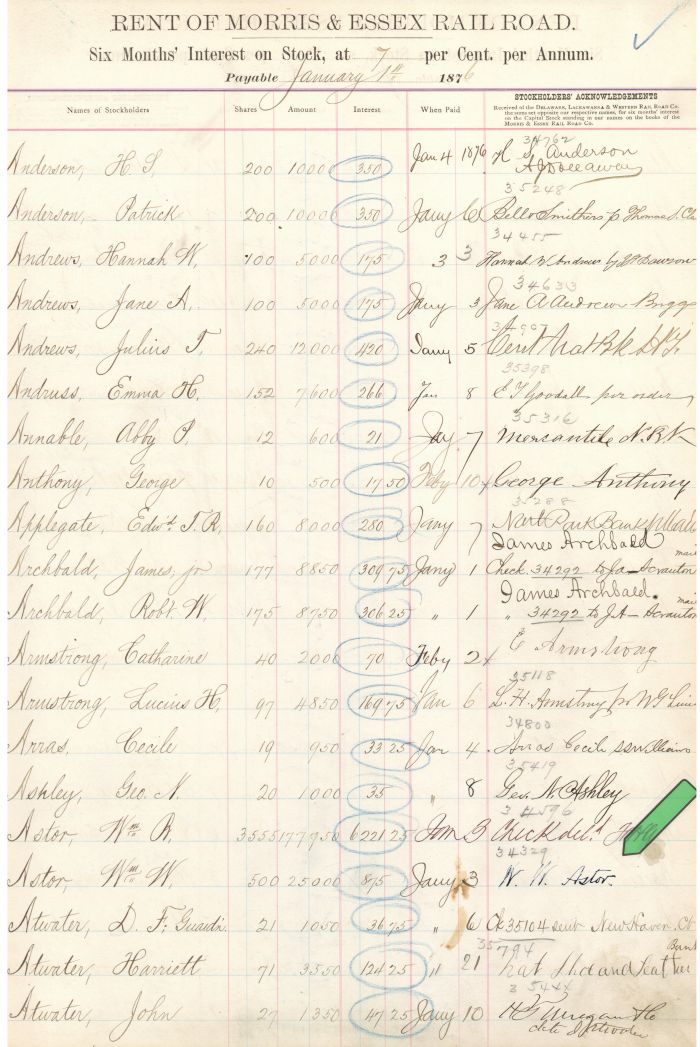 RENT OF MORRIS & ESSEX RAIL ROAD.
SIX MONTHS' INTEREST ON STOCK, AT 7 PER CENT. PER ANNUM.
Payable January 1st 1876
STOCKHOLDERS' ACKNOWLEDGEMENTS
Received of the DELAWARE, LACKAWANNA & WESTERN RAIL ROAD CO. the sums set opposite our respective names, for six months' interest on the Capital Stock standing in our names on the books of the MORRIS & ESSEX RAIL ROAD CO.
Names of Stockholders Shares Amount Interest When Paid
34762
Anderson, H. S. 200 10000 350 Jan 4 1876 H S Anderson
35248
Anderson, Patrick 200 10000 350 Jany 6 Thomas
34455
Andrews, Hannah W. 100 5000 175 3 3 Hannah W Andrews by Dawson
34633
Andrews, Jane A. 100 5000 175 Jany 3 Jane A Andrews Briggs
Andrews, Julius T. 240 12000 420 Jany 5 Cent Nat Bk N.Y.
35398
Andruss, Emma H. 152 7600 266 Jan 8 E Goodall per order
35316
Annable, Abby P. 12 600 21 Jay 7 Mercantile N. B N
Anthony, George 10 500 17 50 Feby 10 x George Anthony
35288
Applegate, Edwd. T. R. 160 8000 280 Jany 7 Nat Park Bank
James Archbald mail
Archbald, James, jr 177 8850 309 75 Jany 1 Check 34292 to JA - Scranton
James Archbald. mail
Archbald, Robt. W. 175 8750 306 25 " 1 " 34292 to JA - Scranton
Armstrong, Catharine 40 2000 70 Feby 2 x E Armstrong
35118
Armstrong, Lucius H. 97 4850 169 75 Jan 6 L. H. Armstrong pr
34800
Arras, Cecile 19 950 33 25 Jan 4 Arras Cecile SS Williams
35419
Ashley, Geo. N. 20 1000 35 " 8 Geo. N. Ashley
34596
Astor, Wm B. 3555 177750 6221 25 Jan 3 Check deld.
34329
Astor, Wm W. 500 25000 875 Jany 3 W. W. Astor.
Atwater, D. F. Guardn. 21 1050 36 75 " 6 Ck 35104 sent New Haven. Ct
35794 Bank
Atwater, Harriett 71 3550 124 25 " 21 Nat Shoe and Leather
Atwater, John 27 1350 47 25 Jany 10